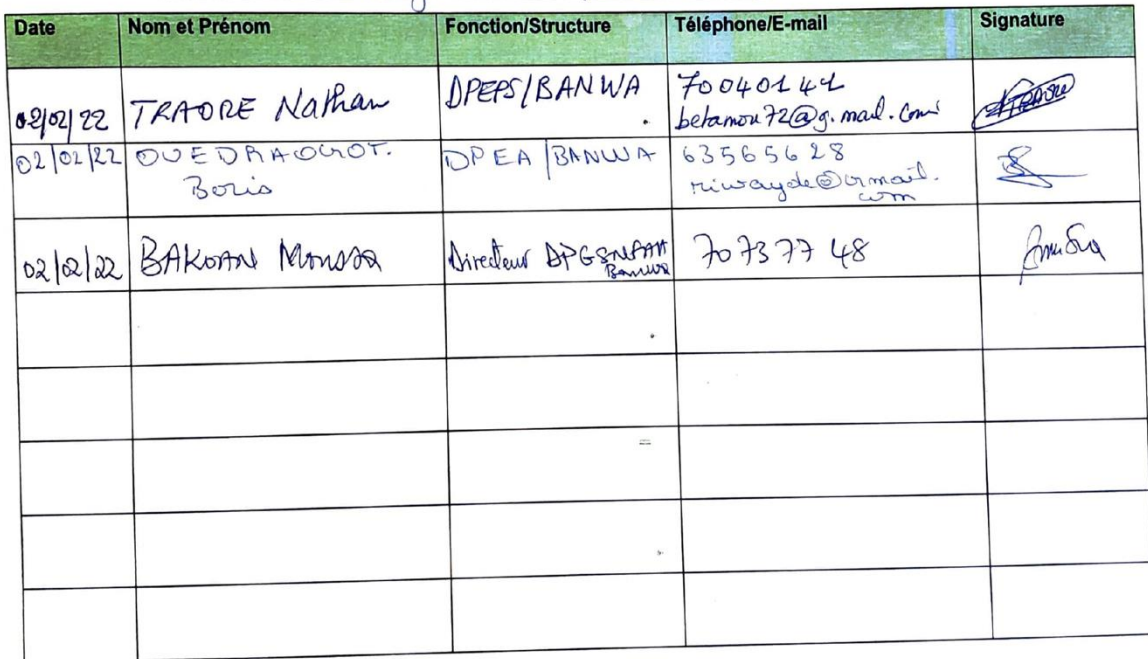 Date Nom et Prénom Fonction/Structure Téléphone/E-mail Signature
02/02/22 TRAORE Nathan DPEPS/BANWA 70040141
betamou72@g.mail.com
02/02/22 OUEDRAOGO T. DPEA/BANWA 63565628
Boris riwayde@gmail.
com
02/02/22 BAKOAN Moussa Directeur 70 73 77 48
Banwa